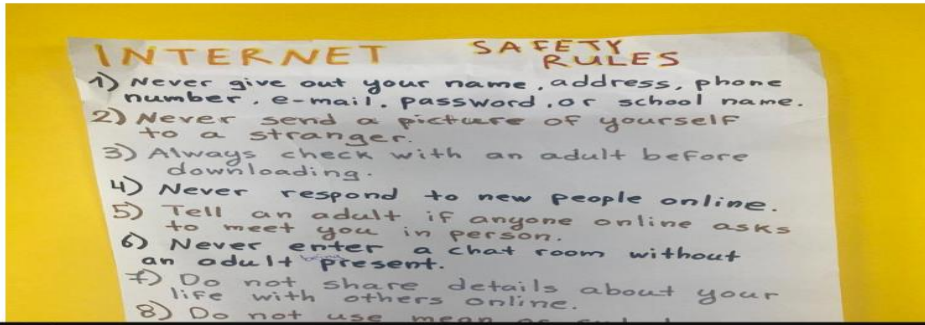 INTERNET SAFETY RULES
1) Never give out your name, address, phone
number, e-mail, password, or school name.
2) Never send a picture of yourself
to a stranger.
3) Always check with an adult before
downloading.
4) Never respond to new people online.
5) Tell an adult if anyone online asks
to meet you in person.
6) Never enter a chat room without
an adult being present.
7) Do not share details about your
life with others online.
8) Do not use mean or